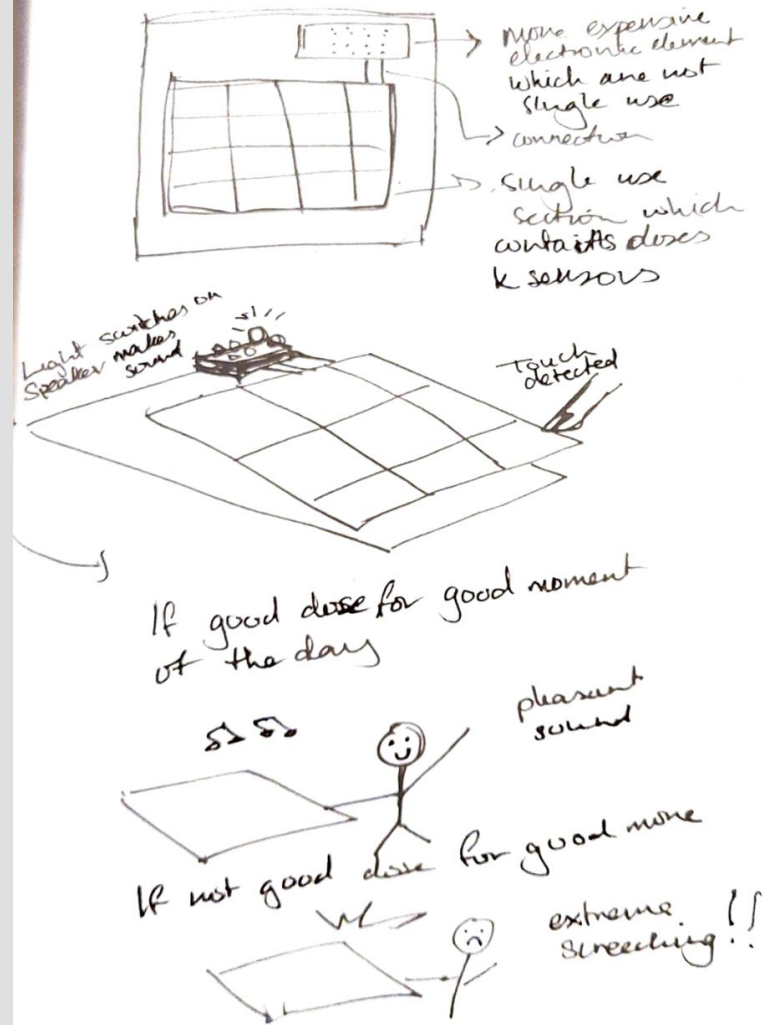 more expensive
electronic element
which are not
single use
connection
single use
section which
contains doses
& sensors
Light switches on
Speaker makes
sound
Touch
detected
If good dose for good moment
of the day
pleasant
sound
If not good dose for good more
extreme
screeching !!